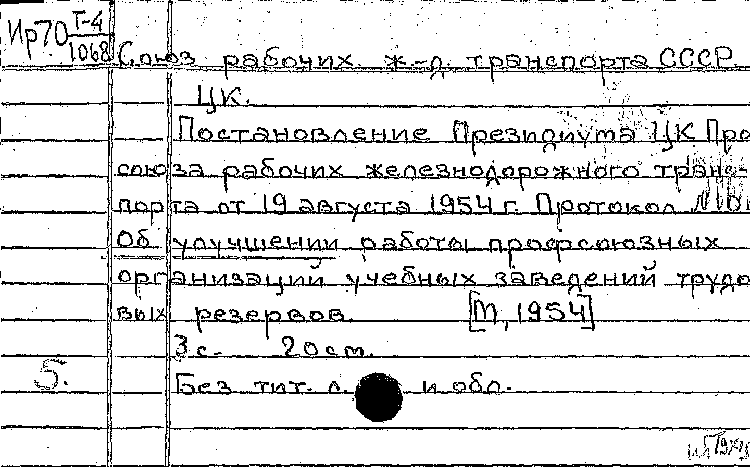 Ир70 Т-4
1068
Союз рабочих ж-д. транспорта СССР.
ЦК.
Постановление Президиума ЦК Про
союза рабочих железнодорожного транс-
порта от 19 августа 1954 г. Протокол
Об улучшении работы профсоюзных
организаций учебных заведений трудо
вых резервов. [М, 1954]
3 с. 20 см.
5.
Без тит. л. и обл.